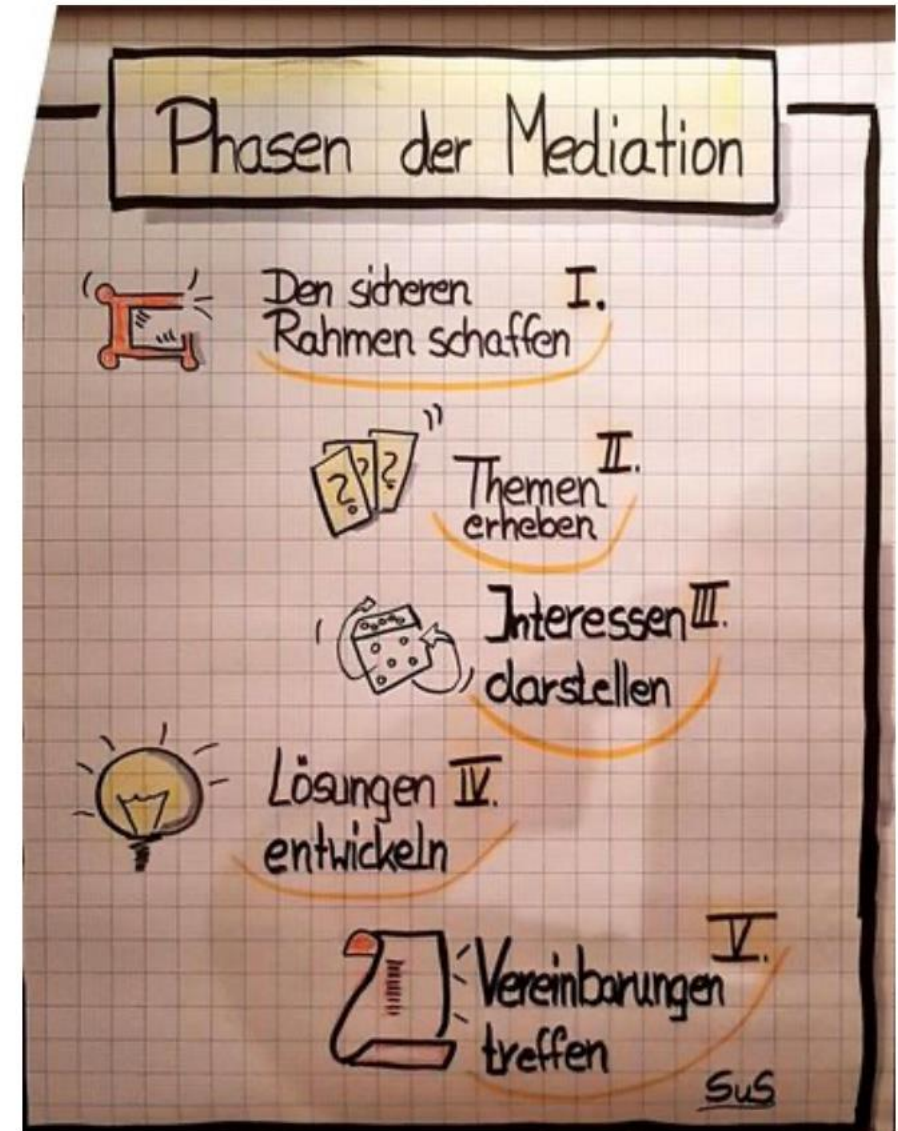 Phasen der Mediation
Den sicheren I.
Rahmen schaffen
? ? ?
Themen II.
erheben
Interessen III.
darstellen
Lösungen IV.
entwickeln
Vereinbarungen V.
treffen
SuS